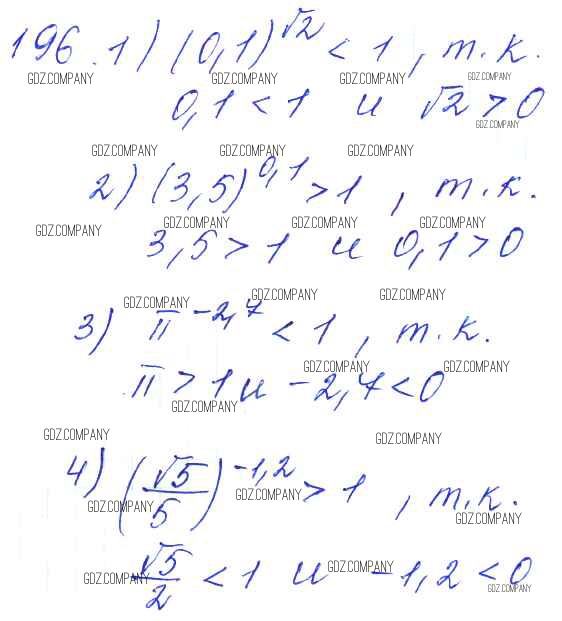 196. 1) (0,1)^√2 < 1, т.к.
GDZ.COMPANY GDZ.COMPANY GDZ.COMPANY GDZ.COMPANY
0,1 < 1 и √2 > 0
GDZ.COMPANY
GDZ.COMPANY GDZ.COMPANY GDZ.COMPANY
2) (3,5)^0,1 > 1, т.к.
GDZ.COMPANY GDZ.COMPANY GDZ.COMPANY GDZ.COMPANY
3,5 > 1 и 0,1 > 0
GDZ.COMPANY GDZ.COMPANY GDZ.COMPANY
3) π^-2,7 < 1, т.к.
GDZ.COMPANY GDZ.COMPANY
π > 1 и -2,7 < 0
GDZ.COMPANY
GDZ.COMPANY GDZ.COMPANY
4) (√5/5)^-1,2 > 1, т.к.
GDZ.COMPANY GDZ.COMPANY GDZ.COMPANY
√5/2 < 1 и -1,2 < 0
GDZ.COMPANY GDZ.COMPANY GDZ.COMPANY